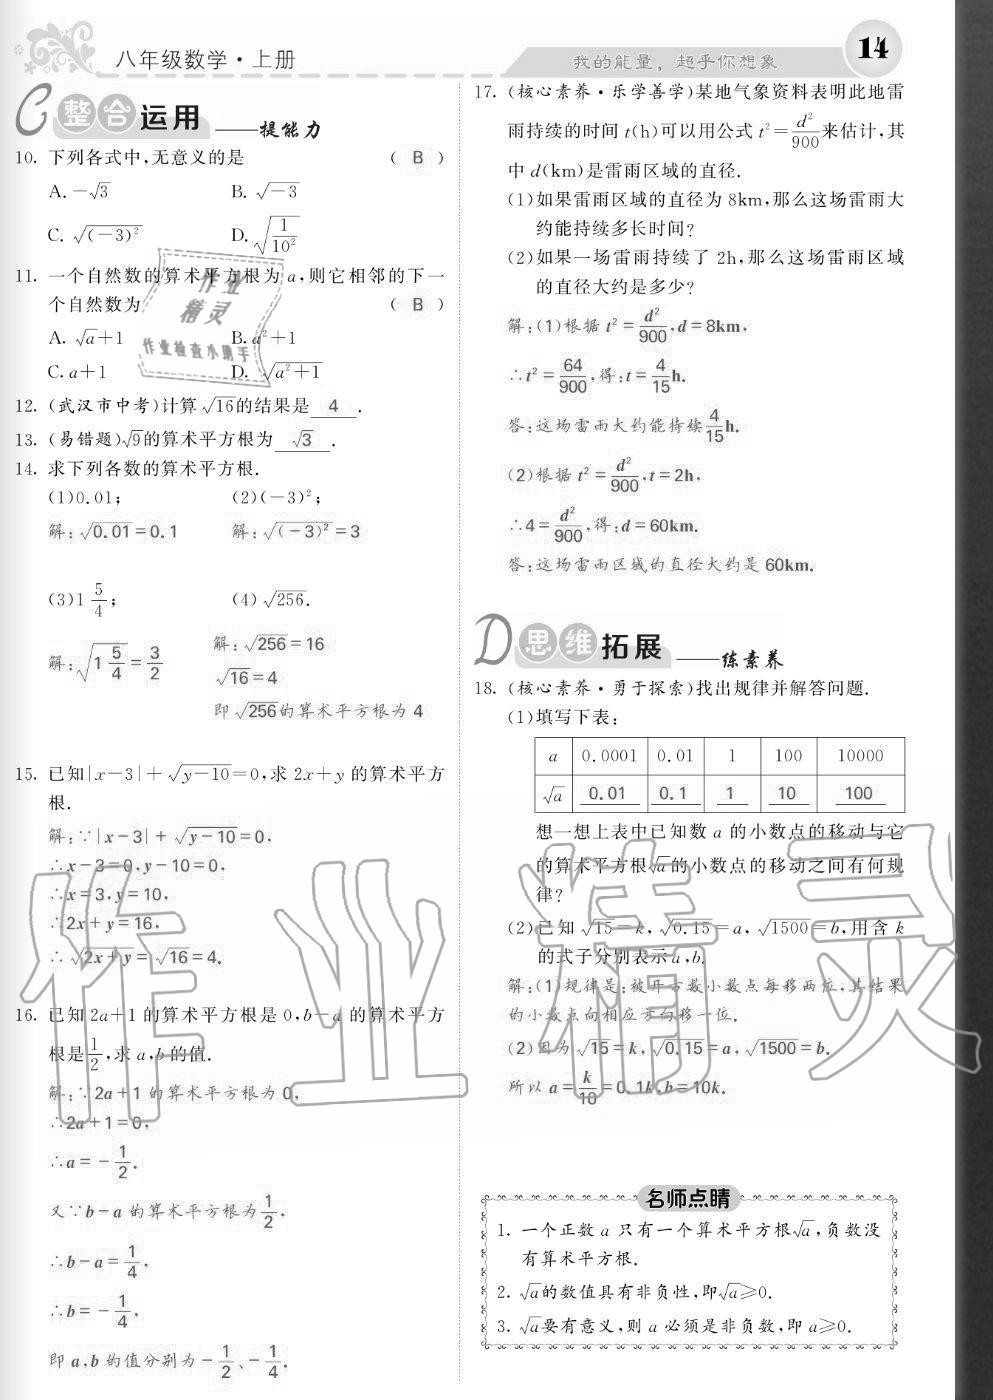 八年级数学·上册
我的能量，超乎你想象
14
C 整合运用 ——提能力
10. 下列各式中,无意义的是 ( B )
A. －√3 B. √－3
C. √(－3)² D. √(1/10²)
11. 一个自然数的算术平方根为 a,则它相邻的下一
个自然数为 ( B )
A. √a＋1 B. a²＋1
C. a＋1 D. √a²＋1
12. (武汉市中考)计算√16的结果是 4 .
13. (易错题)√9的算术平方根为 √3 .
14. 求下列各数的算术平方根.
(1)0.01; (2)(－3)²;
解:√0.01＝0.1 解:√(－3)²＝3
(3)1 5/4; (4)√256.
解:√(1 5/4)＝3/2 解:√256＝16
√16＝4
即√256的算术平方根为 4
15. 已知|x－3|＋√y－10＝0,求 2x＋y 的算术平方
根.
解:∵|x－3|＋√y－10＝0,
∴x－3＝0,y－10＝0,
∴x＝3,y＝10,
∴2x＋y＝16,
∴√2x＋y＝√16＝4.
16. 已知 2a＋1 的算术平方根是 0,b－a 的算术平方
根是1/2,求 a,b 的值.
解:∵2a＋1 的算术平方根为 0,
∴2a＋1＝0,
∴a＝－1/2.
又∵b－a 的算术平方根为1/2,
∴b－a＝1/4,
∴b＝－1/4,
即 a,b 的值分别为－1/2、－1/4.
17. (核心素养·乐学善学)某地气象资料表明此地雷
雨持续的时间 t(h)可以用公式 t²＝d²/900来估计,其
中 d(km)是雷雨区域的直径.
(1)如果雷雨区域的直径为 8km,那么这场雷雨大
约能持续多长时间?
(2)如果一场雷雨持续了 2h,那么这场雷雨区域
的直径大约是多少?
解:(1)根据 t²＝d²/900,d＝8km,
∴t²＝64/900,得:t＝4/15h.
答:这场雷雨大约能持续4/15h.
(2)根据 t²＝d²/900,t＝2h,
∴4＝d²/900,得:d＝60km.
答:这场雷雨区域的直径大约是 60km.
D 思维拓展 ——练素养
18. (核心素养·勇于探索)找出规律并解答问题.
(1)填写下表:
a 0.0001 0.01 1 100 10000
√a 0.01 0.1 1 10 100
想一想上表中已知数 a 的小数点的移动与它
的算术平方根√a的小数点的移动之间有何规
律?
(2)已知√15＝k,√0.15＝a,√1500＝b,用含 k
的式子分别表示 a,b.
解:(1)规律是:被开方数小数点每移两位,其结果
的小数点向相应方向移一位.
(2)因为√15＝k,√0.15＝a,√1500＝b.
所以 a＝k/10＝0.1k,b＝10k.
名师点睛
1. 一个正数 a 只有一个算术平方根√a,负数没
有算术平方根.
2. √a的数值具有非负性,即√a≥0.
3. √a要有意义,则 a 必须是非负数,即 a≥0.
作业
精灵
作业检查小助手
作业精灵